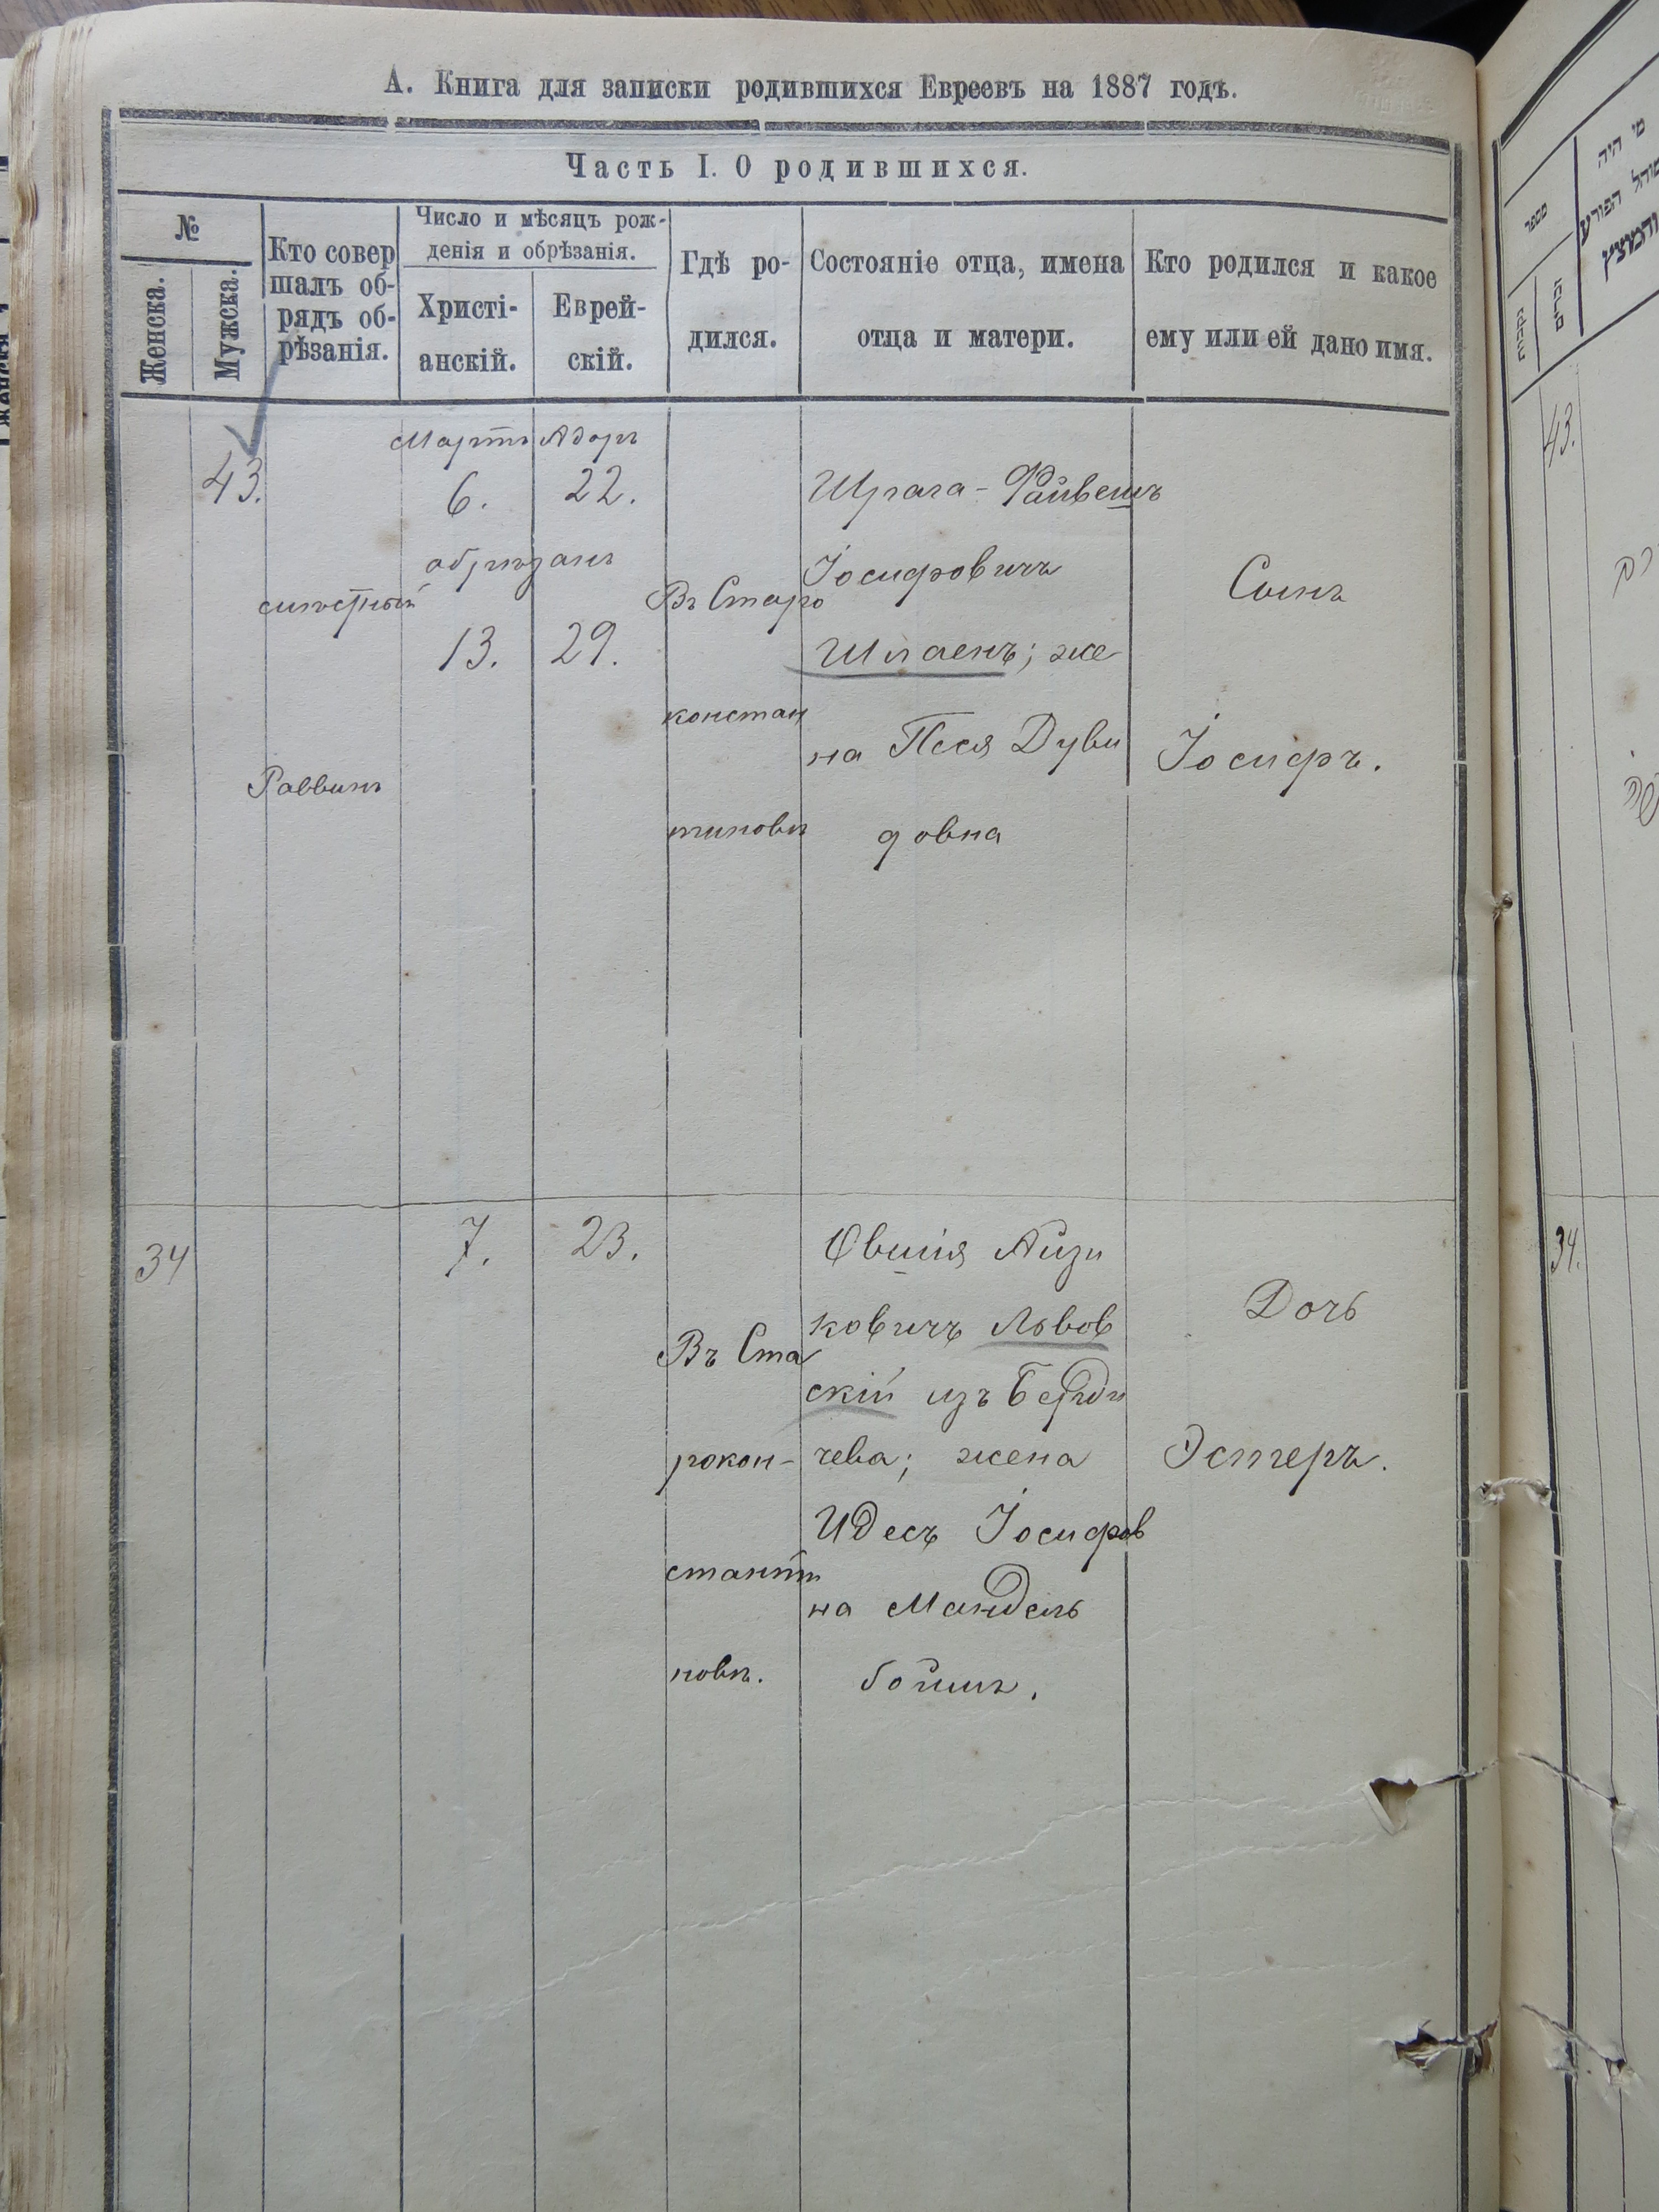 А. Книга для записки родившихся Евреевъ на 1887 годъ.
Часть I. О родившихся.
№
Женска.
Мужска.
Кто совер
шалъ об-
рядъ об-
рѣзанія.
Число и мѣсяцъ рож-
денія и обрѣзанія.
Христі-
анскій.
Еврей-
скій.
Гдѣ ро-
дился.
Состояніе отца, имена
отца и матери.
Кто родился и какое
ему или ей дано имя.
43.
Раввинъ
Мартъ Адаръ
6. 22.
обрѣзанъ
13. 29.
Въ Старо
констан
тиновѣ
Шрага-Файвешъ
Іосифовичъ
Шпаенъ; же
на Песя Дуви
довна
Сынъ
Іосифъ.
34
7. 23.
Въ Ста
рокон-
стант
новѣ.
Овшія Айзи
ковичъ Львов
скій изъ Берди
чева; жена
Идесъ Іосифов
на Мандель
боймъ.
Дочь
Эстеръ.
מי היה
מספר
נקבות
זכרים
43.
34.